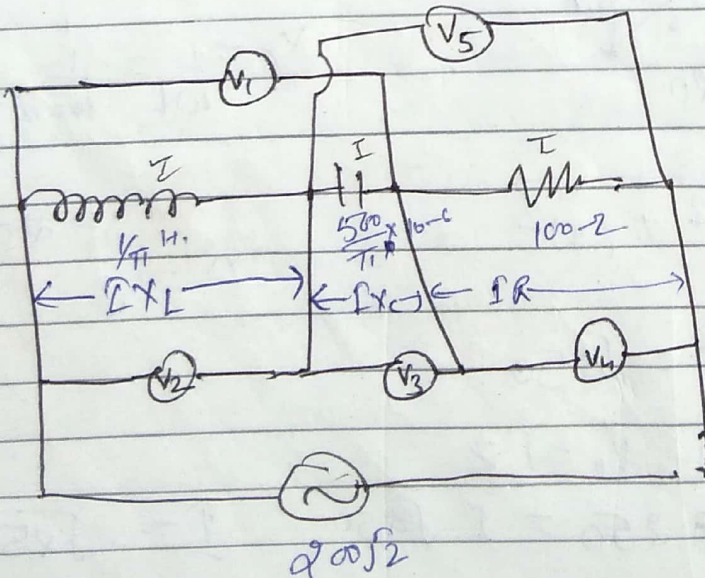 V5
V1
I I I
1/π H. 500/π × 10-6 100-Ω
← IXL → ← IXC → ← IR →
V2 V3 V4
~
200√2